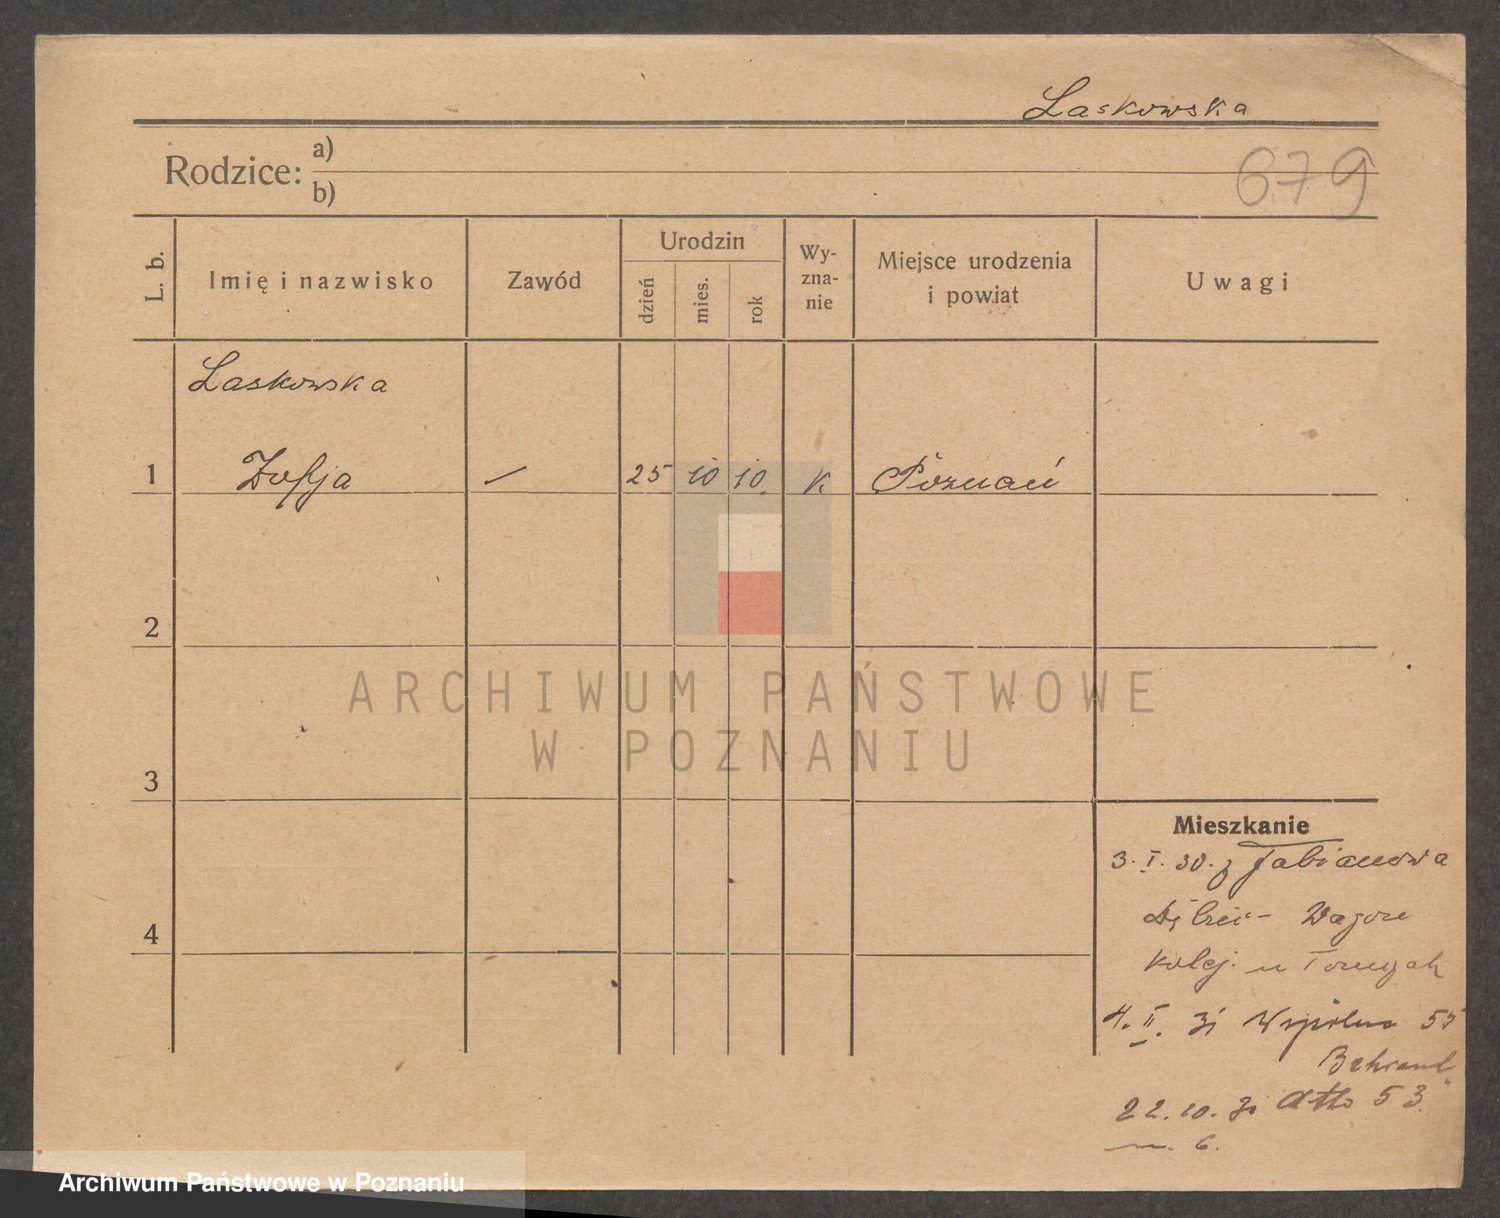 Laskowska
Rodzice: a)
b)
679
L. b.
Imię i nazwisko
Zawód
Urodzin
dzień
mies.
rok
Wy-
zna-
nie
Miejsce urodzenia
i powiat
Uwagi
Laskowska
1 Zofja — 25 10 10. k Poznań
2
3
4
Mieszkanie
3. I. 30. z Fabianowa
Dębiec - Wagon
kolej.
4. II. 31 Wspólna 55
22. 10. 31 dtto 53.
m. 6.
ARCHIWUM PAŃSTWOWE
W POZNANIU
Archiwum Państwowe w Poznaniu